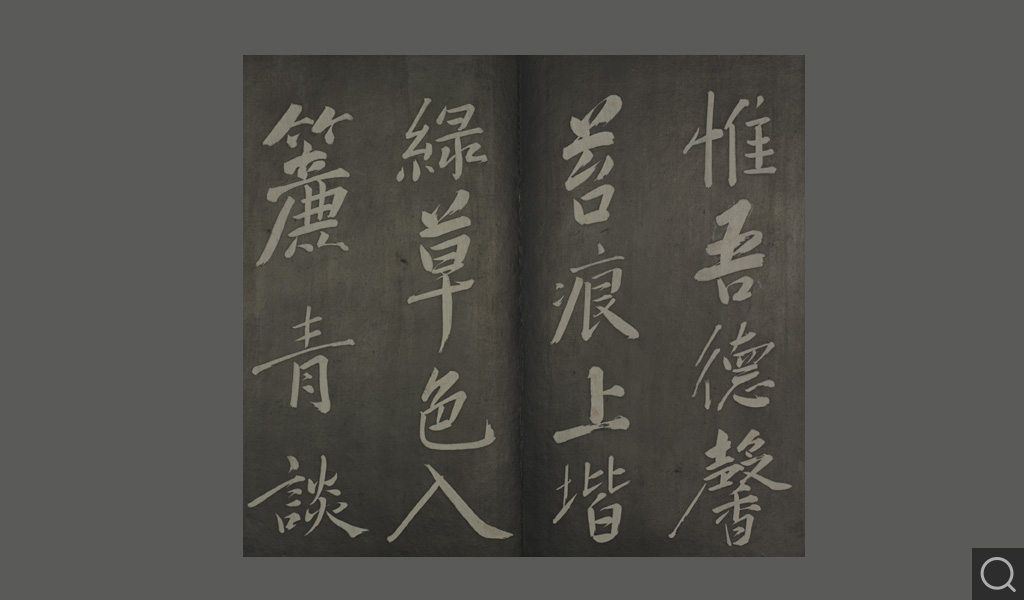 惟吾德馨
苔痕上堦
綠草色入
簾青談